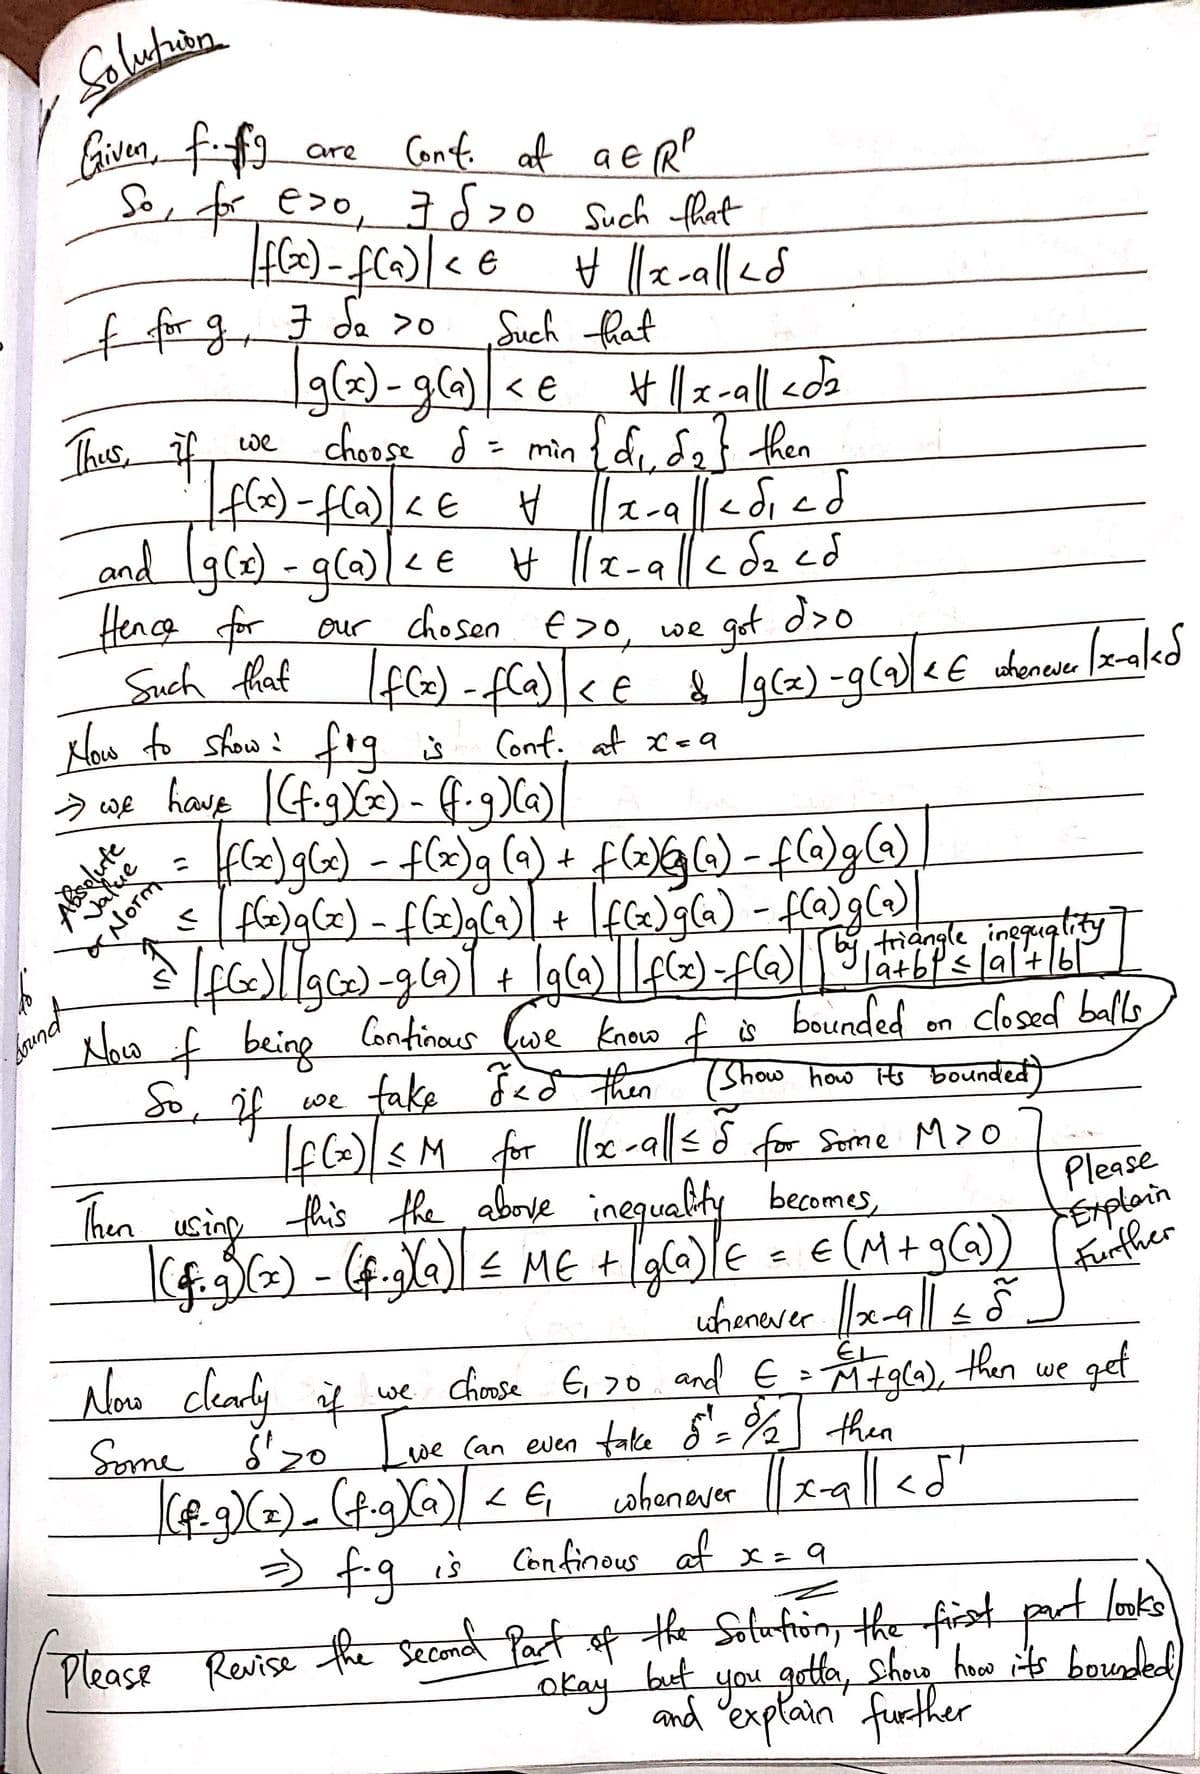 Solution
Given, f & g are Cont. at a ∈ ℝᵖ
So, for ε>0, ∃ δ >0 Such that
|f(x) - f(a)| < ε ∀ ||x-a|| < δ
& for g, ∃ δ2 >0 Such that
|g(x) - g(a)| < ε ∀ ||x-a|| < δ2
Thus, if we choose δ = min {δ1, δ2} then
|f(x) - f(a)| < ε ∀ ||x-a|| < δ1 < δ
and |g(x) - g(a)| < ε ∀ ||x-a|| < δ2 < δ
Hence for our chosen ε>0, we got δ>0
Such that |f(x) - f(a)| < ε & |g(x) - g(a)| < ε whenever |x-a|<δ
Now to show: f·g is Cont. at x=a
→ we have |(f·g)(x) - (f·g)(a)|
= |f(x)g(x) - f(x)g(a) + f(x)g(a) - f(a)g(a)|
Absolute Value or Norm
≤ |f(x)g(x) - f(x)g(a)| + |f(x)g(a) - f(a)g(a)|
≤ |f(x)||g(x) - g(a)| + |g(a)||f(x) - f(a)| [by triangle inequality |a+b| ≤ |a|+|b|]
to bound
Now f being Continous (we know f is bounded on closed balls
So, if we take δ̃<δ then (Show how its bounded)
|f(x)| ≤ M for ||x-a|| ≤ δ̃ for Some M>0
Please Explain Further
Then using this the above inequality becomes,
|(f·g)(x) - (f·g)(a)| ≤ Mε + |g(a)|ε = ε(M+g(a))
whenever ||x-a|| ≤ δ̃
Now clearly if we choose ε1>0 and ε = ε1/M+g(a), then we get
Some δ'>0 [we can even take δ' = δ̃/2] then
|(f·g)(x) - (f·g)(a)| < ε1 whenever ||x-a|| < δ'
⇒ f·g is Continous at x=a
(Please Revise the Second Part of the Solution, the first part looks
okay but you gotta, Show how it's bounded)
and explain further